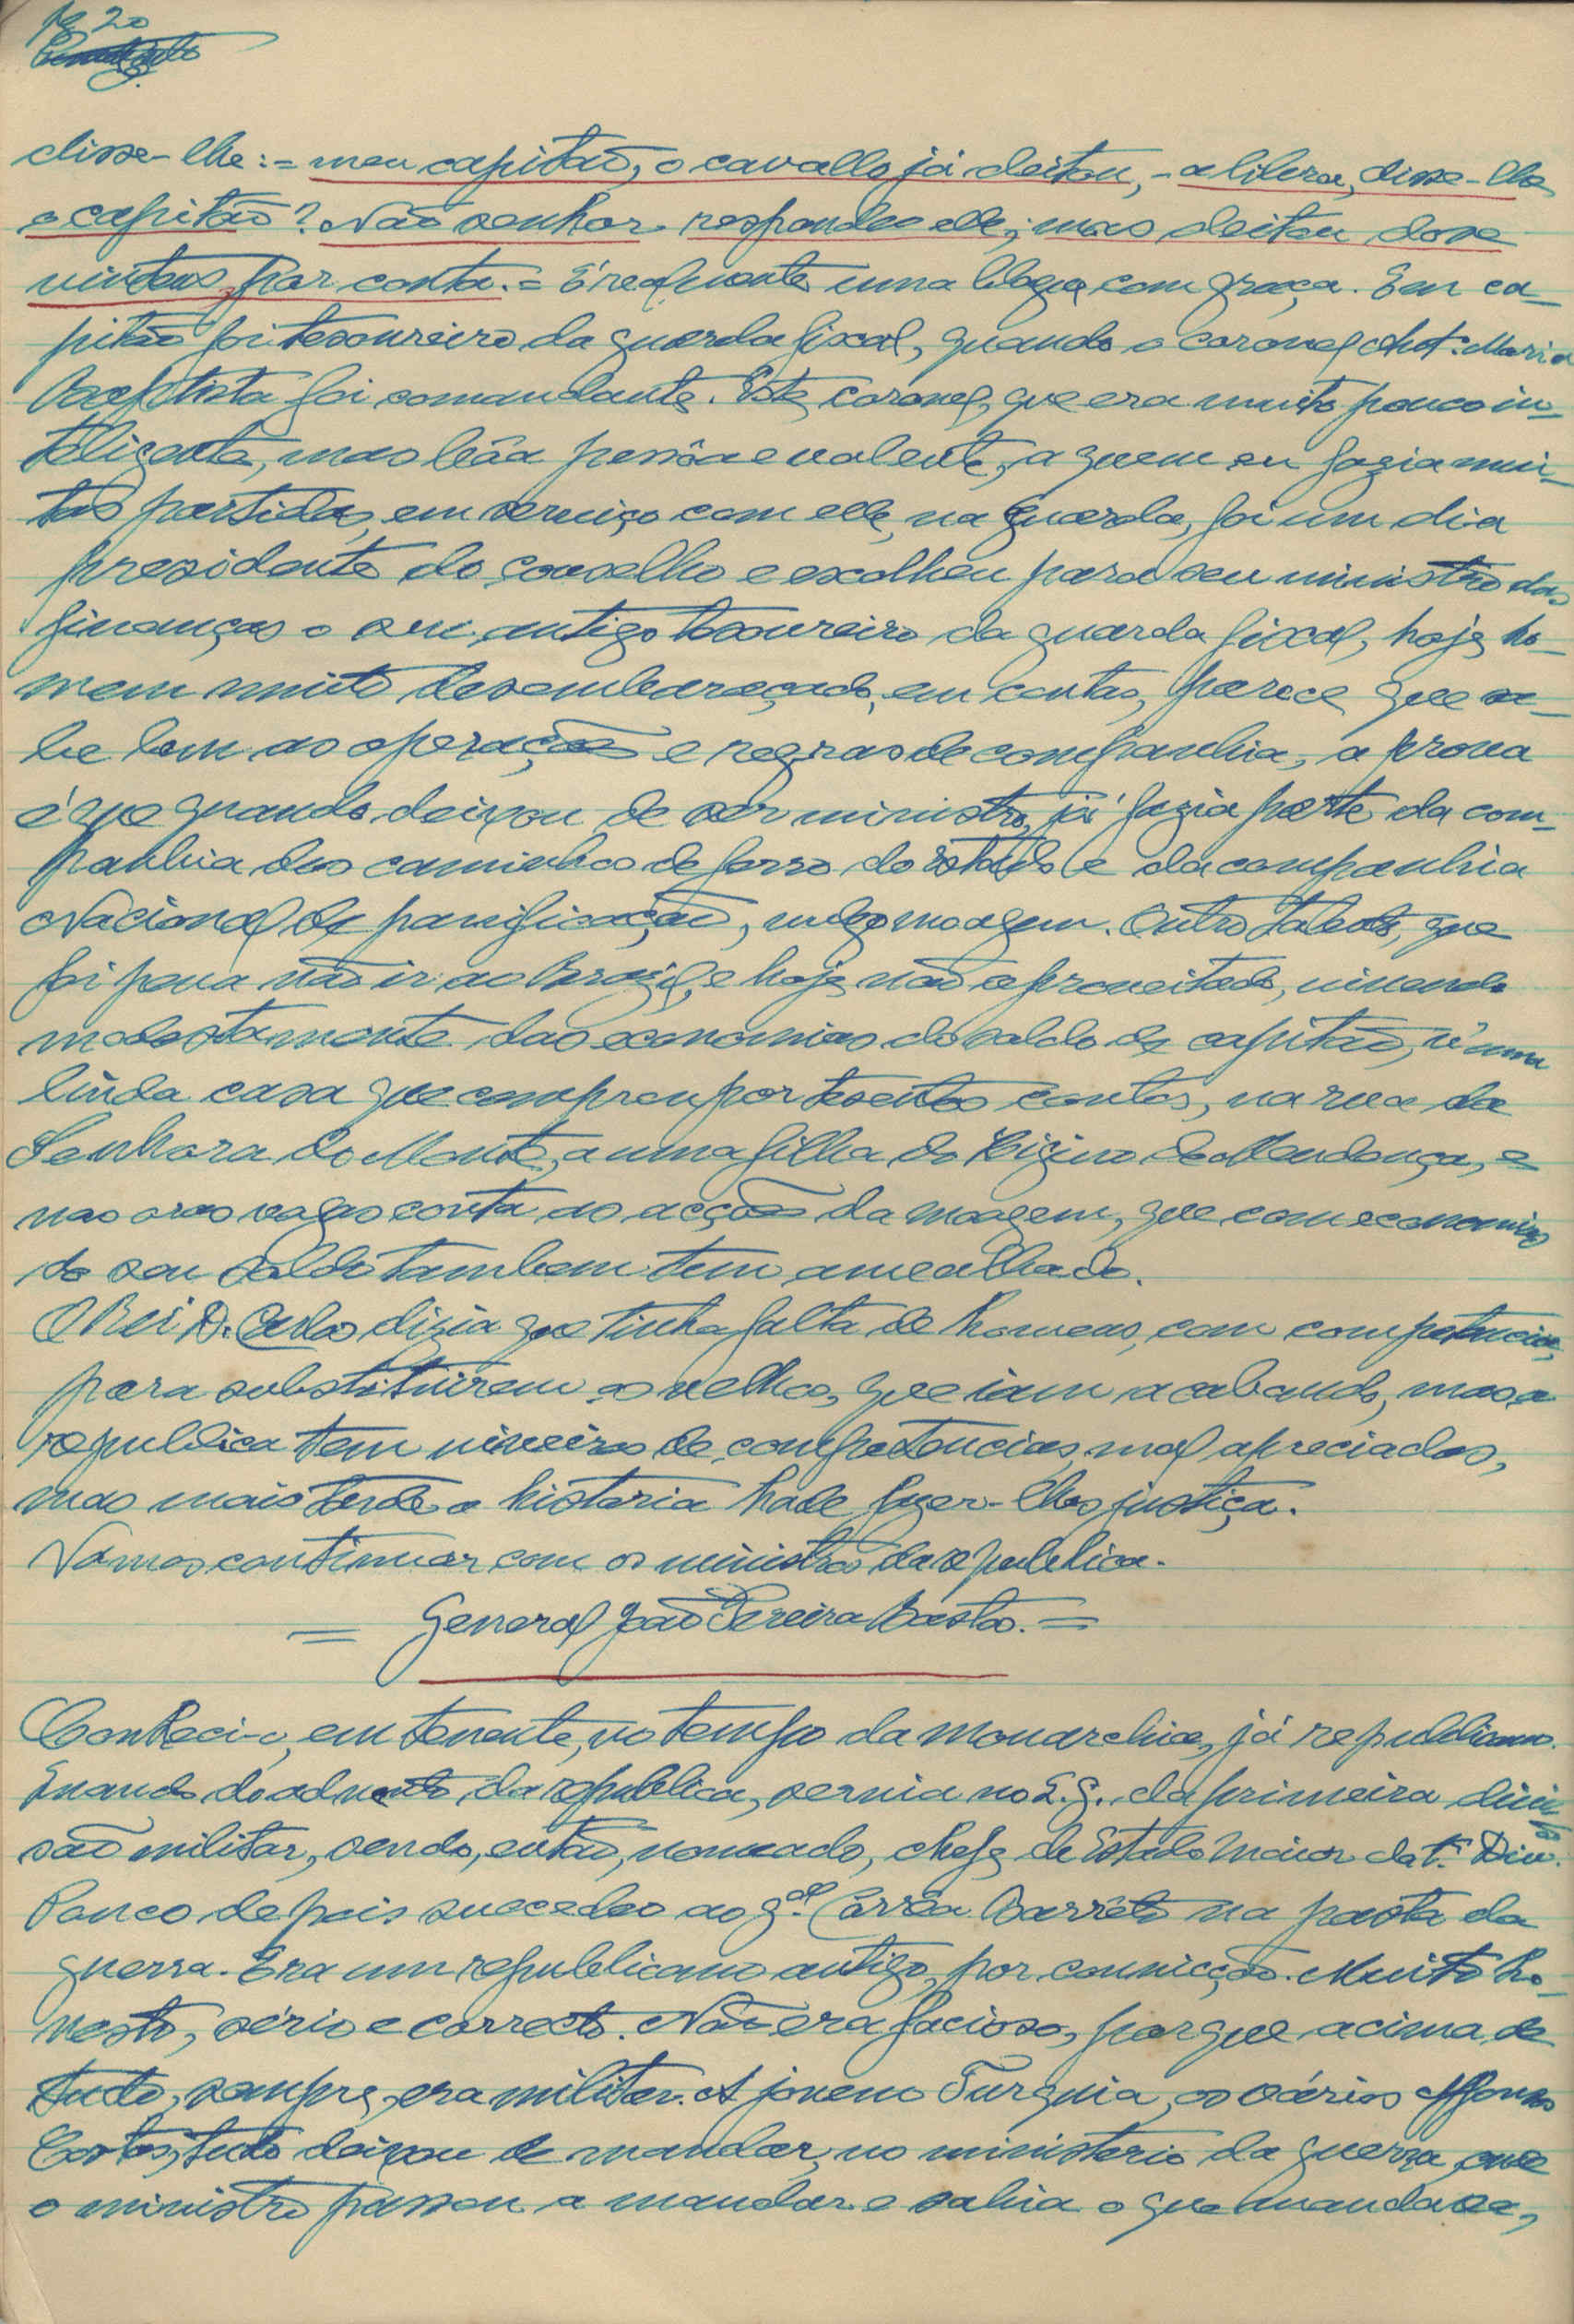 pg 20
disse-lhe: = meu capitão, o cavallo já deitou, - a libra, disse-lhe
o capitão? Não senhor respondeu elle; mas deitou dose
vintens por conta. = É realmente uma blague com graça. Em ca-
pitão foi tesoureiro da guarda fiscal, quando o coronel Antº. Maria
Baptista foi comandante. Este coronel, que era muito pouco in-
teligente, mas bôa pessôa e valente, a quem eu fazia mui-
tas partidas, em serviço com elle, na guarda, foi um dia
presidente do conselho e escolheu para seu ministro das
finanças o seu antigo tesoureiro da guarda fiscal, hoje ho-
mem muito desembaraçado, em contas, parece que sa-
be bem as operações e regras de companhia, a prova
é que quando deixou de ser ministro, já fazia parte da com-
panhia dos caminhos de ferro do Estado e da companhia
Nacional de panificação, vulgo moagem. Outro talento, que
foi pena não ir ao Brazil, e hoje não aproveitado, vivendo
modestamente das economias do soldo de capitão, n'uma
linda casa que comprou por tresentos contos, na rua da
Senhora do Monte, a uma filha do Higino de Mendonça, e
nas oras vagas conta as acções da moagem, que com economias
do seu soldo tambem tem amealhado.
O Rei D. Carlos dizia que tinha falta de homens, com competencia,
para substituirem os velhos, que iam acabando, mas a
republica tem viveiros de competencias, mal apreciadas,
mas mais tarde a historia hade fazer-lhes justiça.
Vamos continuar com os ministros da republica.
= General João Pereira Bastos. =
Conheci-o, em tenente, no tempo da monarchia, já republicano.
Quando do advento da republica, servia no Q.G. da primeira divi-
são militar, sendo, então, nomeado, chefe de Estado Maior da 1ª. Div.
Pouco depois sucedeo ao gal. Corrêa Barrêto na pasta da
guerra. Era um republicano antigo, por convicção. Muito ho-
nesto, sério e correcto. Não era facioso, porque acima de
tudo, sempre, era militar. A jovem Turquia, os vários Affonso
Costas, tudo deixou de mandar, no ministerio da guerra, que
o ministro passou a mandar e sabia o que mandava,